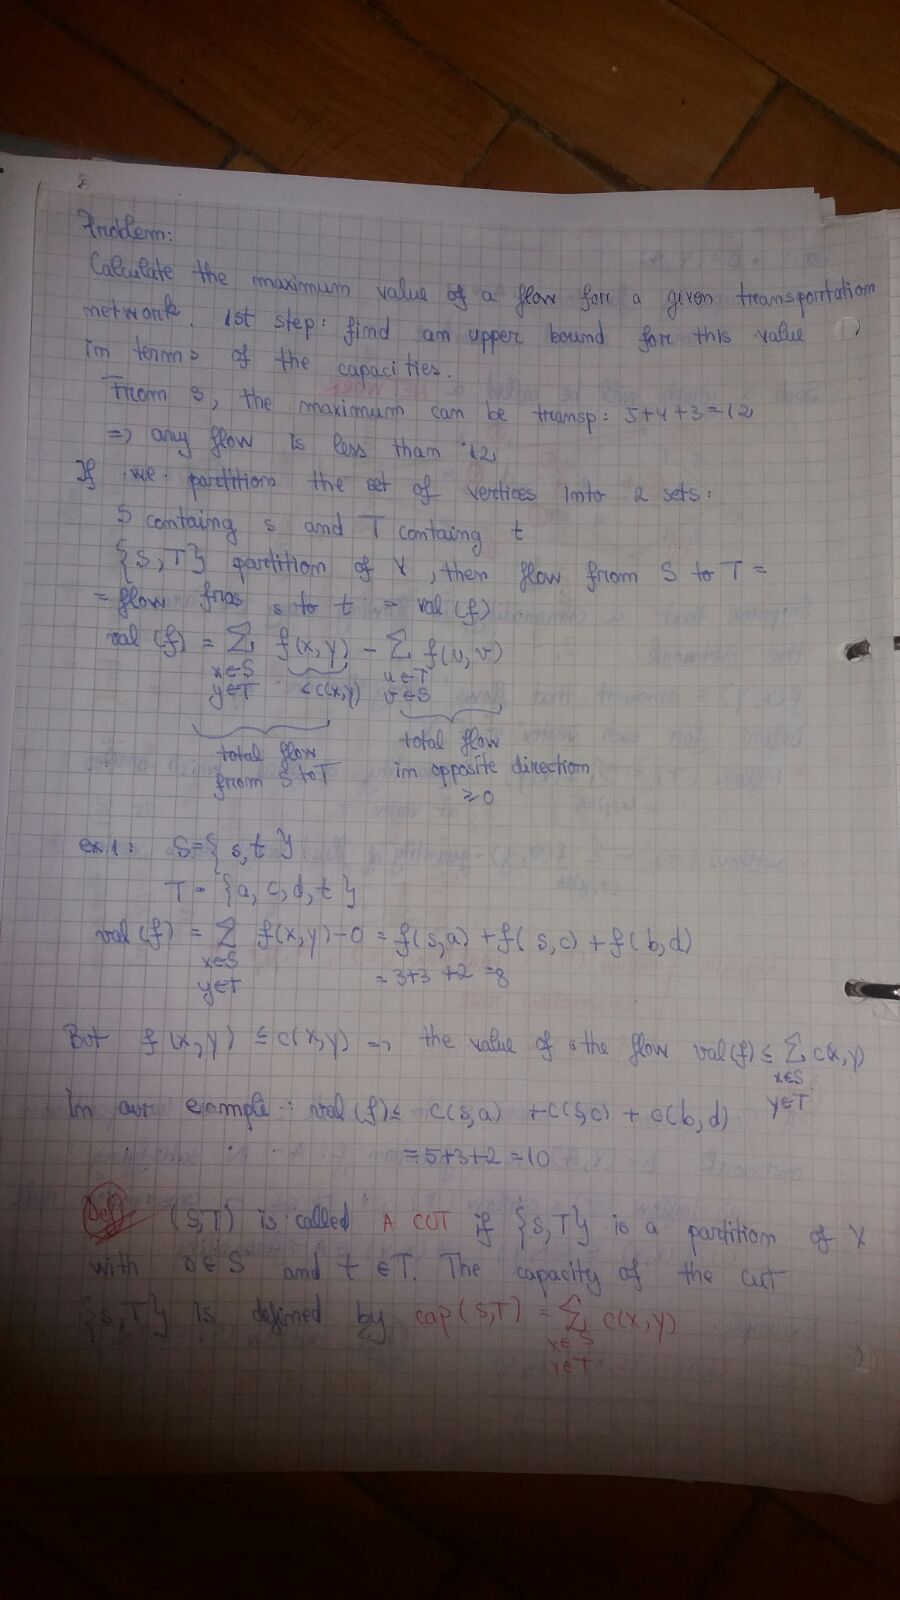 Problem:
Calculate the maximum value of a flow for a given transportation
network. 1st step: find an upper bound for this value
in terms of the capacities.
From s, the maximum can be transp: 5+4+3=12
=> any flow is less than 12
If we partition the set of vertices into 2 sets:
S containg s and T containg t
{S,T} partition of X, then flow from S to T =
= flow from s to t = val(f)
val(f) = ∑ f(x,y) - ∑ f(u,v)
x∈S ≤c(x,y) u∈T
y∈T v∈S
total flow total flow
from S to T in opposite direction
≥0
ex1: S={s,t}
T={a,c,d,t}
val(f) = ∑ f(x,y)-0 = f(s,a) + f(s,c) + f(b,d)
x∈S
y∈T = 3+3+2=8
But f(x,y) ≤ c(x,y) => the value of the flow val(f) ≤ ∑ c(x,y)
x∈S
y∈T
In our example: val(f) ≤ c(s,a) + c(s,c) + c(b,d)
= 5+3+2=10
Def (S,T) is called A CUT if {S,T} is a partition of X
with s∈S and t∈T. The capacity of the cut
{S,T} is defined by cap(S,T) = ∑ c(x,y)
x∈S
y∈T